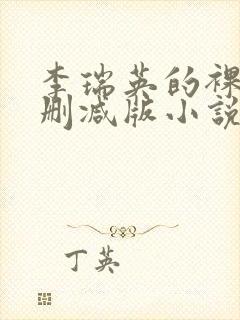 李瑞英的裸
删减版小说
丁英